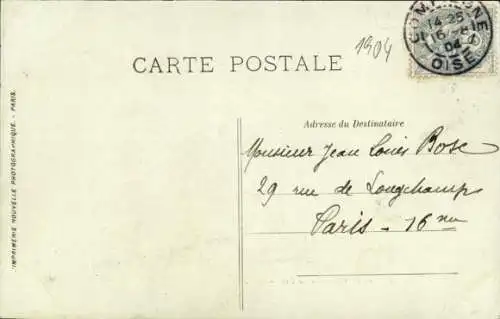 COMPIEGNE
14 25
16 - 8
04
OISE
1904
CARTE POSTALE
Adresse du Destinataire
Monsieur Jean Louis Bosc
29 rue de Longchamps
Paris - 16 me
IMPRIMERIE NOUVELLE PHOTOGRAPHIQUE. - PARIS.